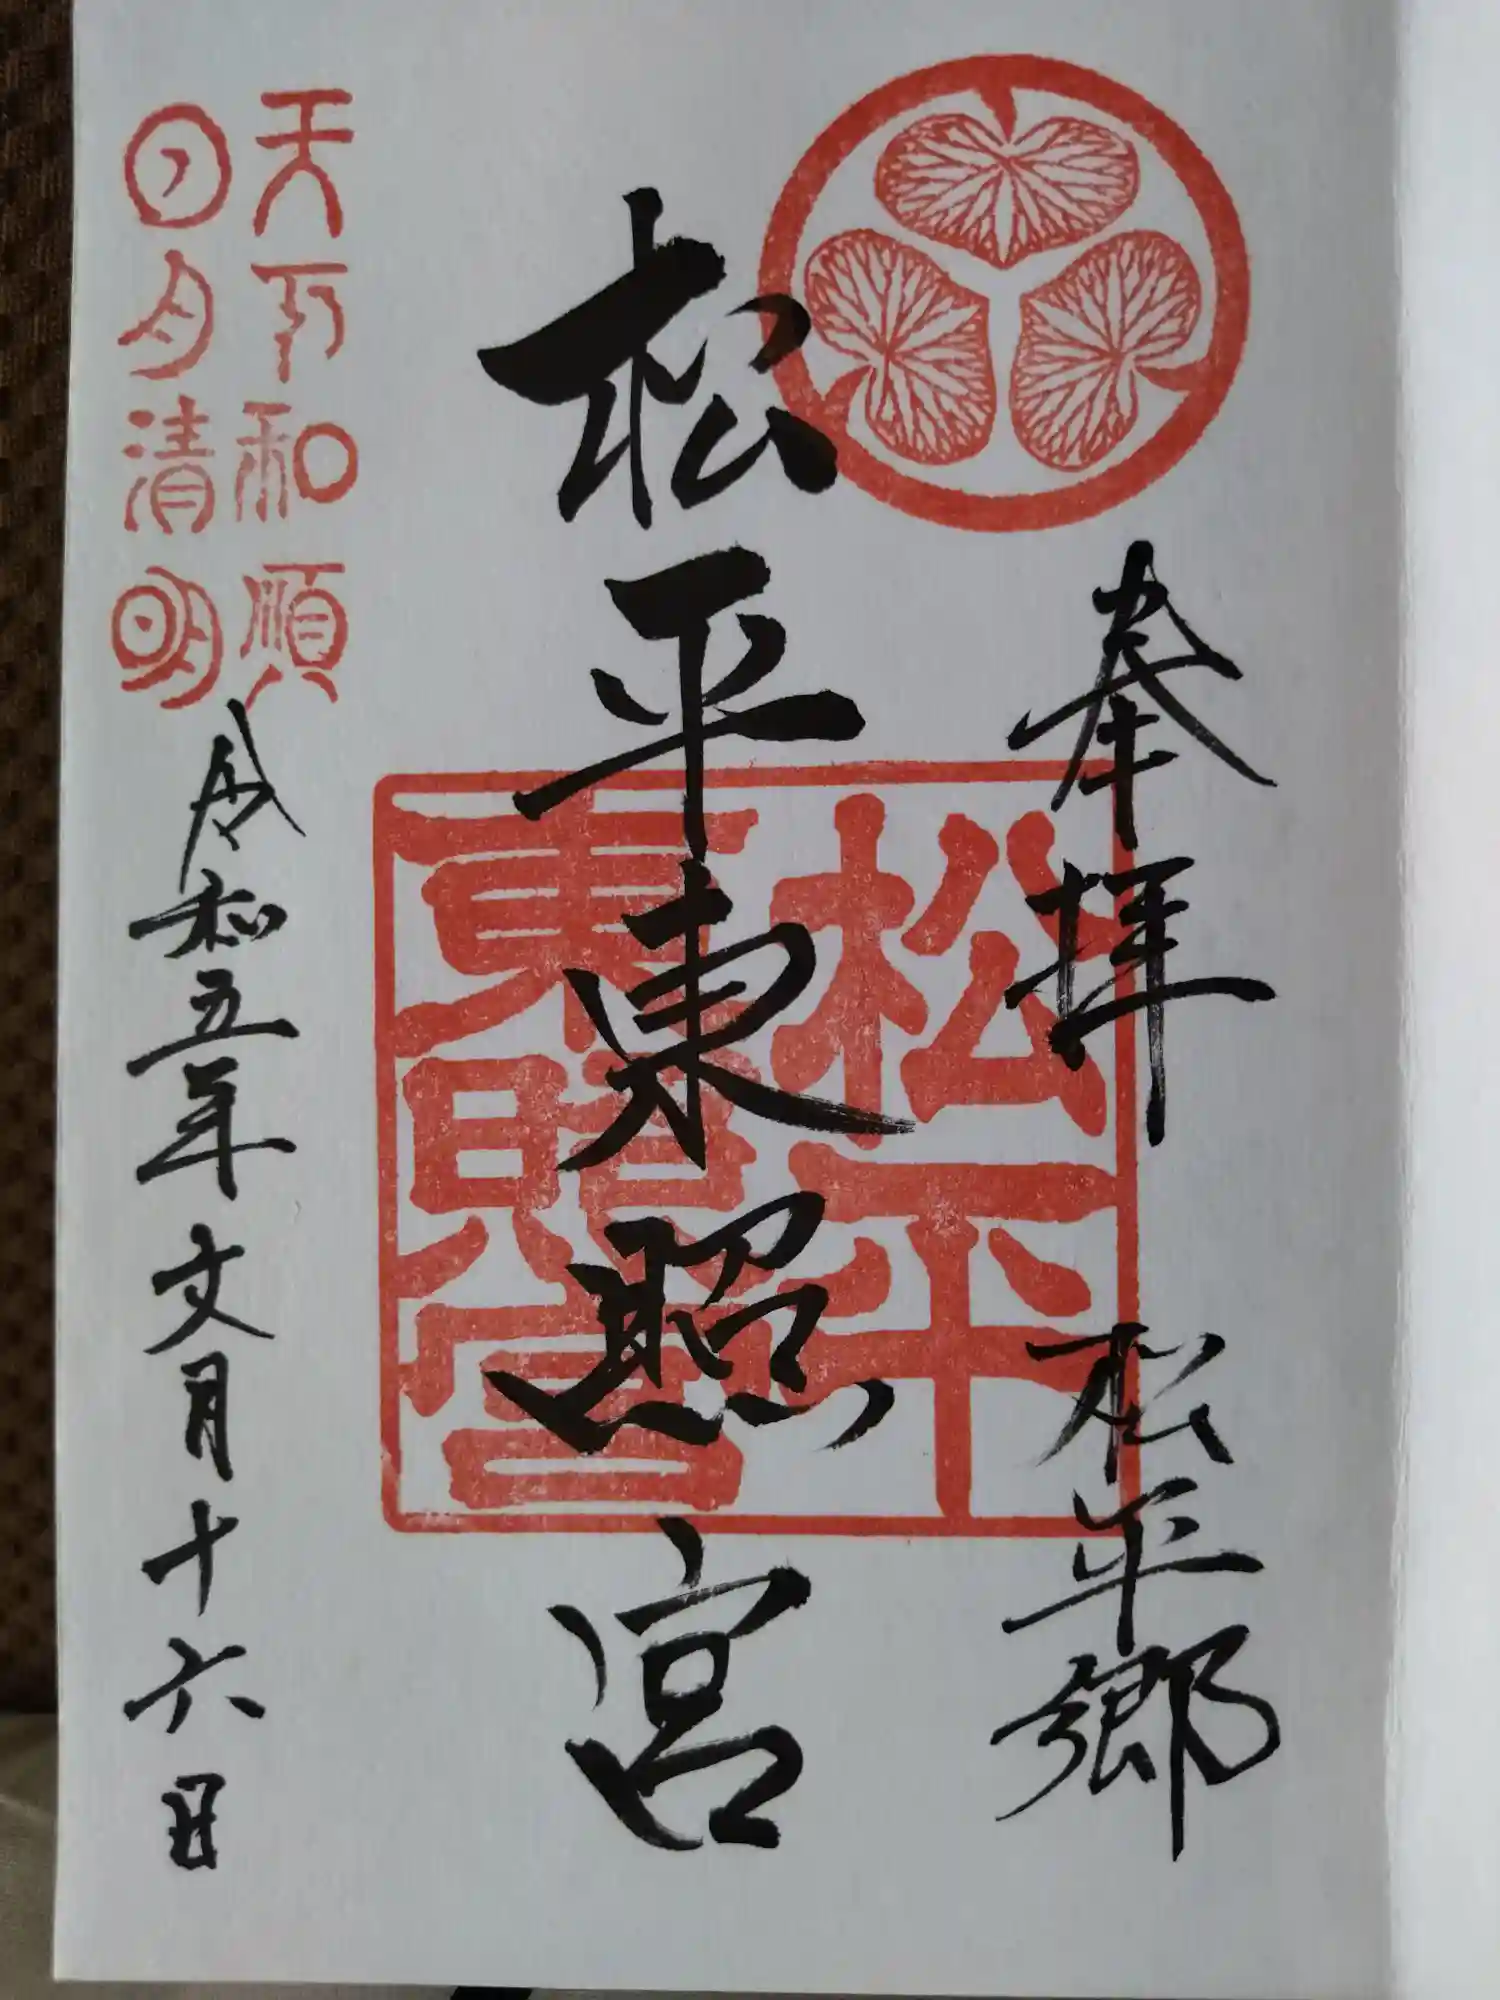 奉拝 松平郷
松平東照宮
松平
東照宮
天下和順
日月清明
令和五年文月十六日